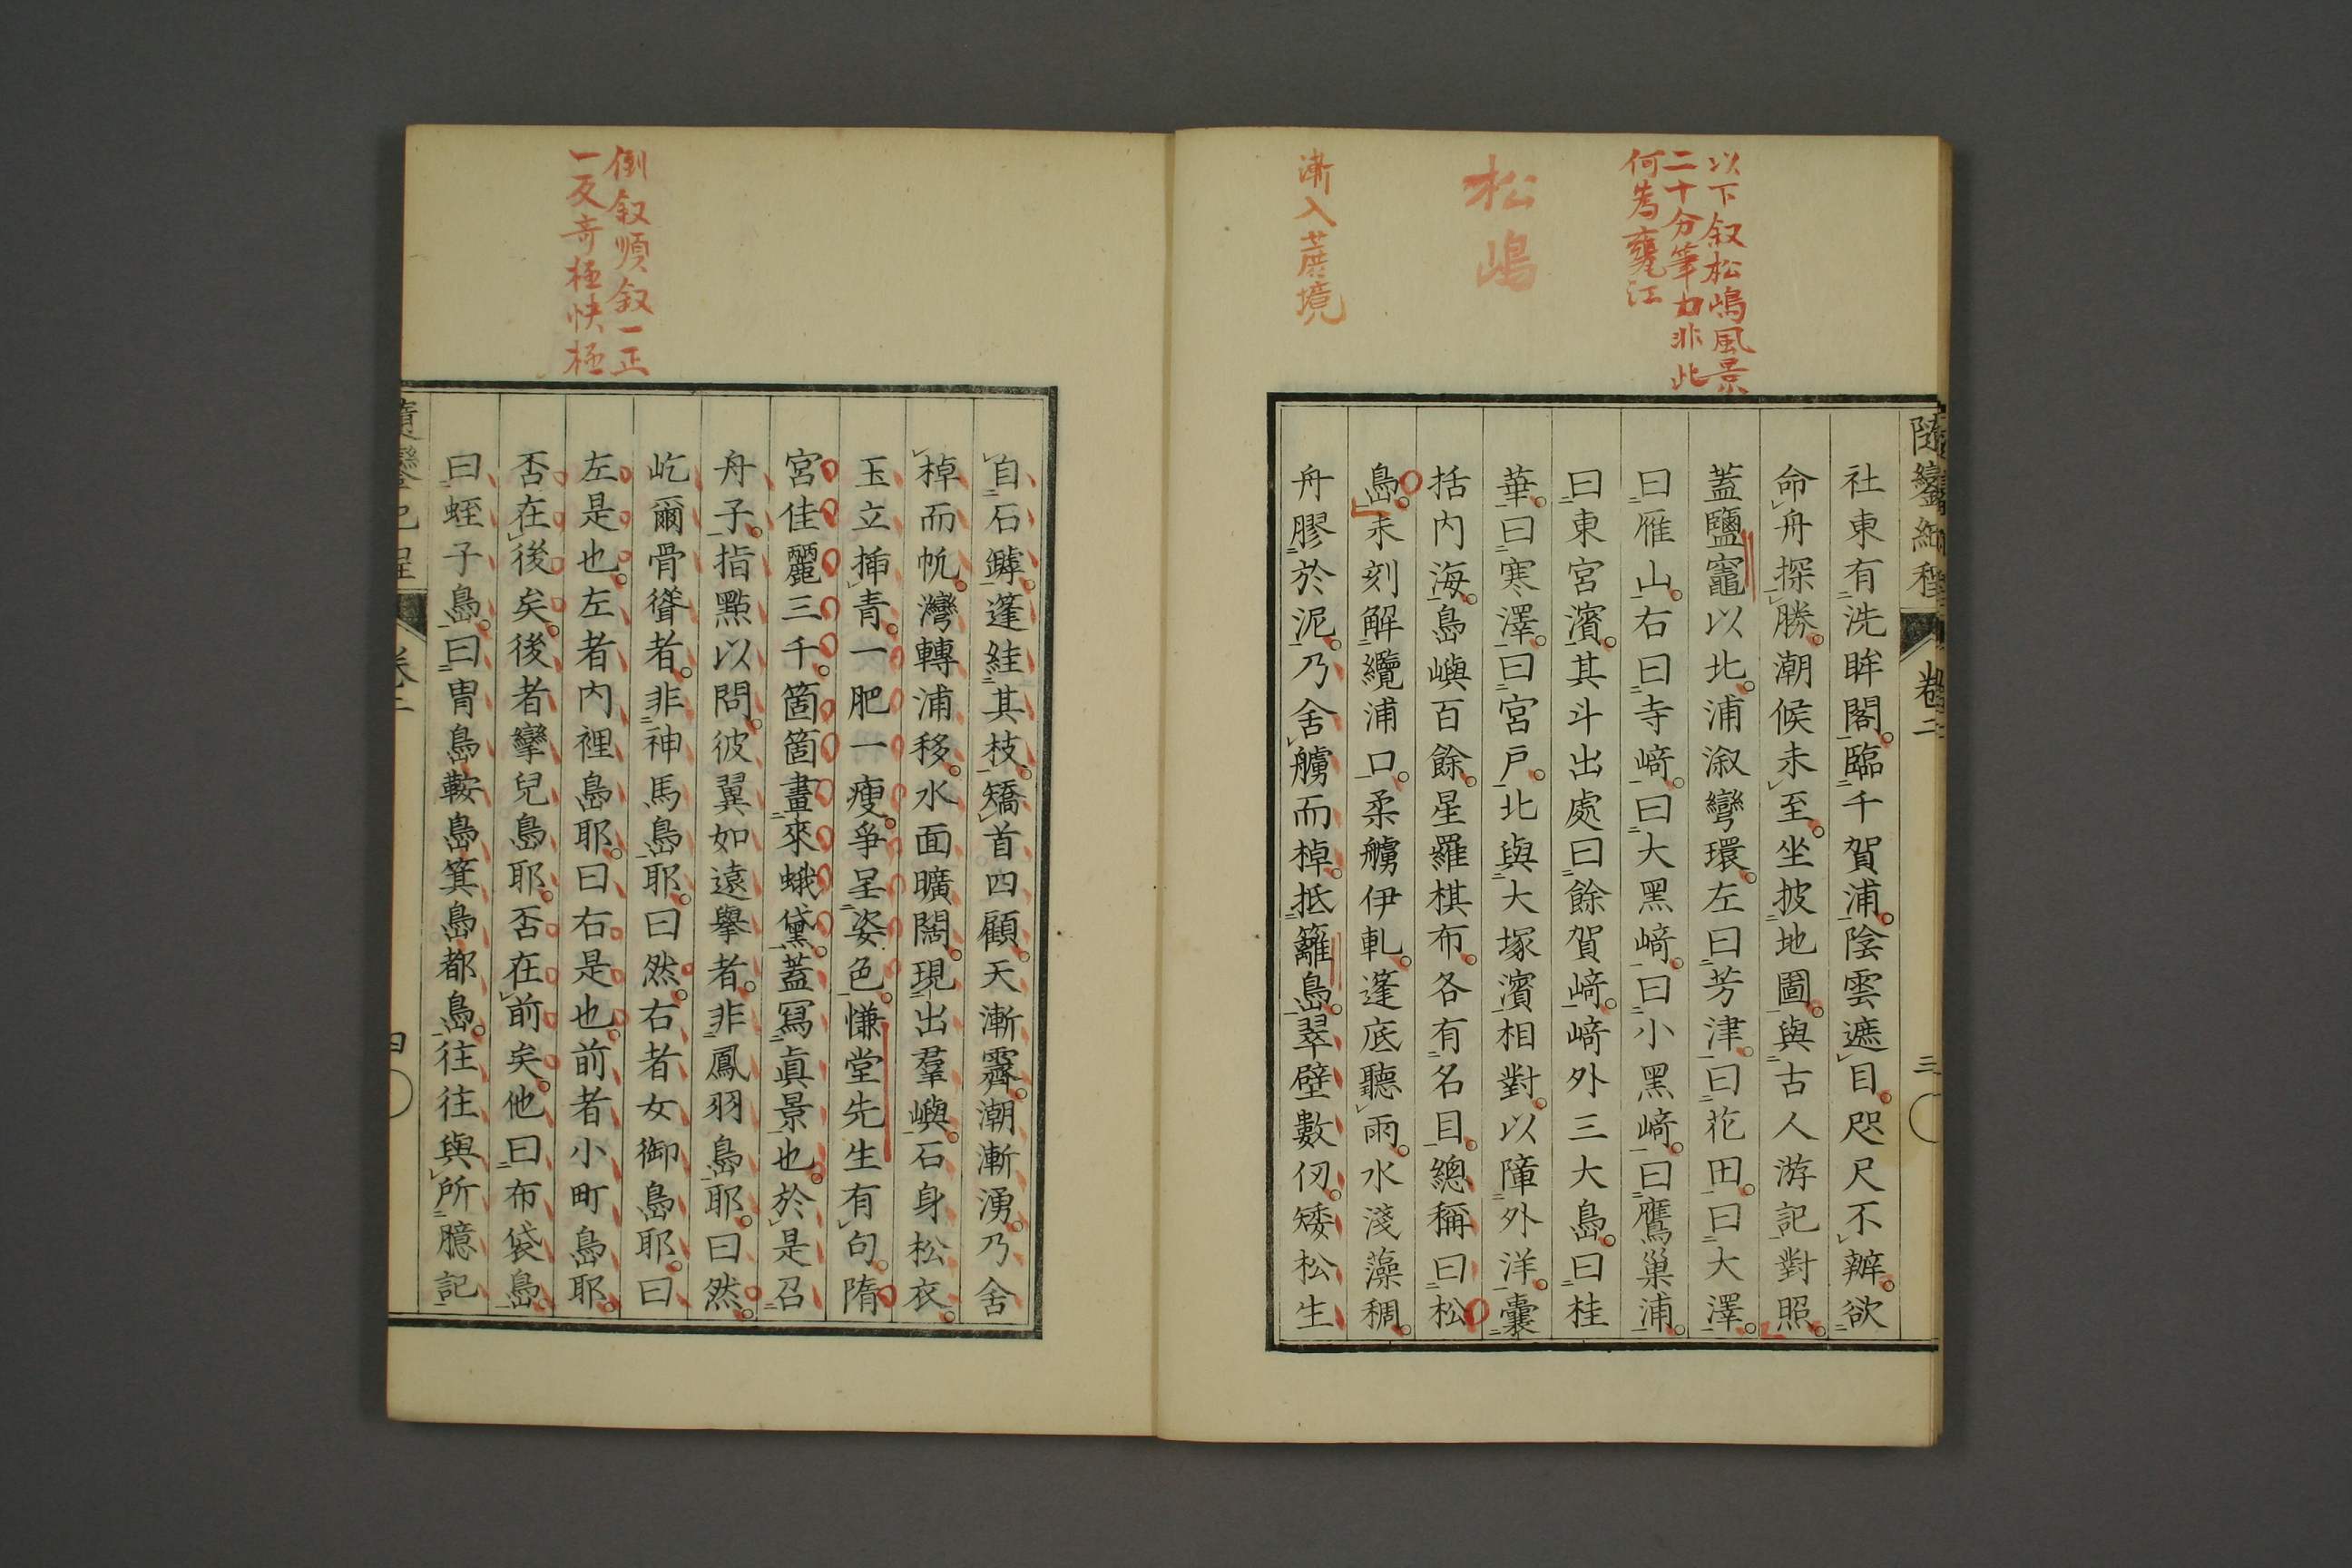 以下叙松嶋風景
二十分筆力非此
何為甕江
松嶋
漸入蔗境
隨鑾紀程
卷二
三
社東有洗眸閣。臨千賀浦。陰雲遮目。咫尺不辨。欲
命舟探勝。潮候未至。坐披地圖。與古人游記對照。
蓋鹽竈以北。浦溆彎環。左曰芳津。曰花田。曰大澤。
曰雁山。右曰寺﨑。曰大黑﨑。曰小黑﨑。曰鷹巢浦。
曰東宮濱。其斗出處曰餘賀﨑。﨑外三大島。曰桂
華。曰寒澤。曰宮戶。北與大塚濱相對。以障外洋。囊
括内海。島嶼百餘。星羅棋布。各有名目。總稱曰松
島。未刻解纜浦口。柔艣伊軋。篷底聽雨。水淺藻稠。
舟膠於泥。乃舍艣而棹。抵籬島。翠壁數仞。矮松生
倒叙順叙一正
一反奇極快極
自石罅。篷絓其枝。矯首四顧。天漸霽。潮漸湧。乃舍
棹而帆。灣轉浦移。水面曠闊。現出羣嶼。石身松衣。
玉立揷青。一肥一瘦。爭呈姿色。慊堂先生有句。隋
宮佳麗三千。箇箇畫來蛾黛。蓋寫眞景也。於是召
舟子。指點以問。彼翼如遠擧者。非鳳羽島耶。曰然。
屹爾骨聳者。非神馬島耶。曰然。右者女御島耶。曰
左是也。左者内裡島耶。曰右是也。前者小町島耶。
否在後矣。後者孿兒島耶。否在前矣。他曰布袋島。
曰蛭子島。曰冑島鞍島箕島都島。往往與所臆記